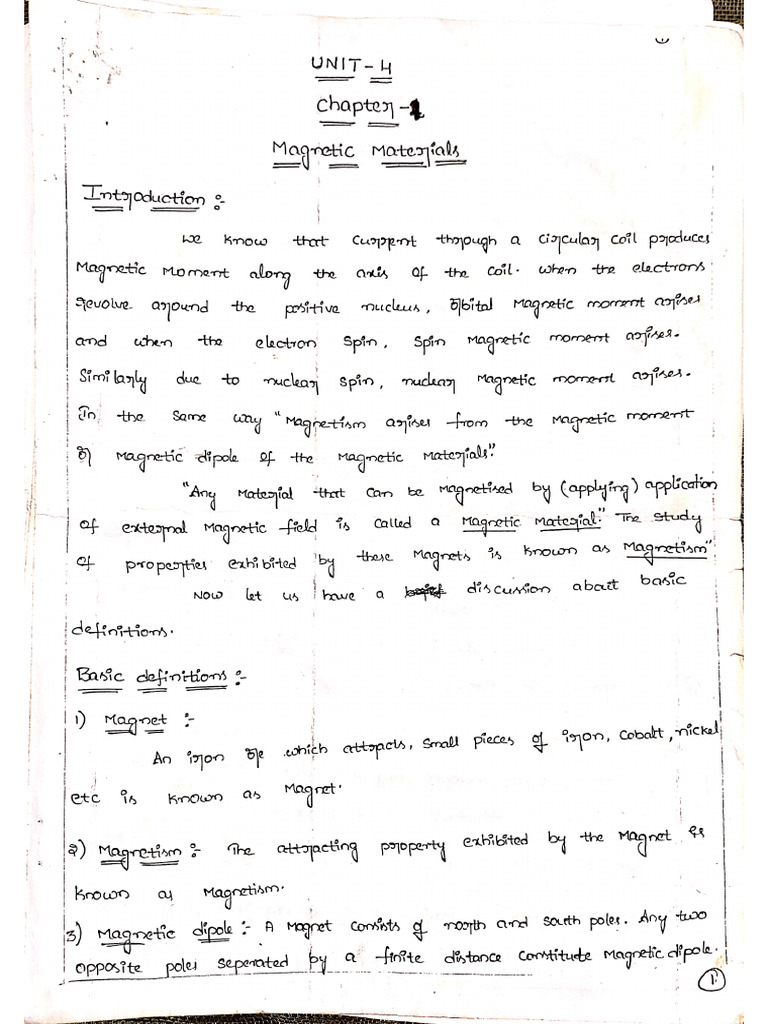 UNIT-4
Chapter-1
Magnetic Materials
Introduction :-
We know that current through a circular coil produces
Magnetic Moment along the axis of the coil. when the electrons
revolve around the positive nucleus, orbital Magnetic moment arises
and when the electron spin, spin Magnetic moment arises.
Similarly due to nuclear spin, nuclear Magnetic moment arises.
In the same way "Magnetism arises from the Magnetic moment
or Magnetic dipole of the Magnetic Materials".
"Any Material that can be magnetised by (applying) application
of external Magnetic field is called a Magnetic Material." The study
of properties exhibited by these Magnets is known as Magnetism"
Now let us have a brief discussion abait basic
definitions.
Basic definitions :-
1) Magnet :-
An iron ore which attracts, small pieces of iron, cobalt, nickel
etc is known as Magnet.
2) Magnetism :- The attracting property exhibited by the Magnet is
known as Magnetism.
3) Magnetic dipole :- A Magnet consists of north and south poles. Any two
opposite poles seperated by a finite distance constitute Magnetic dipole.
1